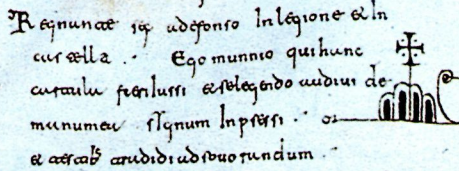 Regnante rex adefonso In legione et In
castella. Ego munnio qui hunc
cartulu fieri iussi et relegendo audivi de
manu mea signum Inpressi.
et testibs tradidi ad rovorandum.